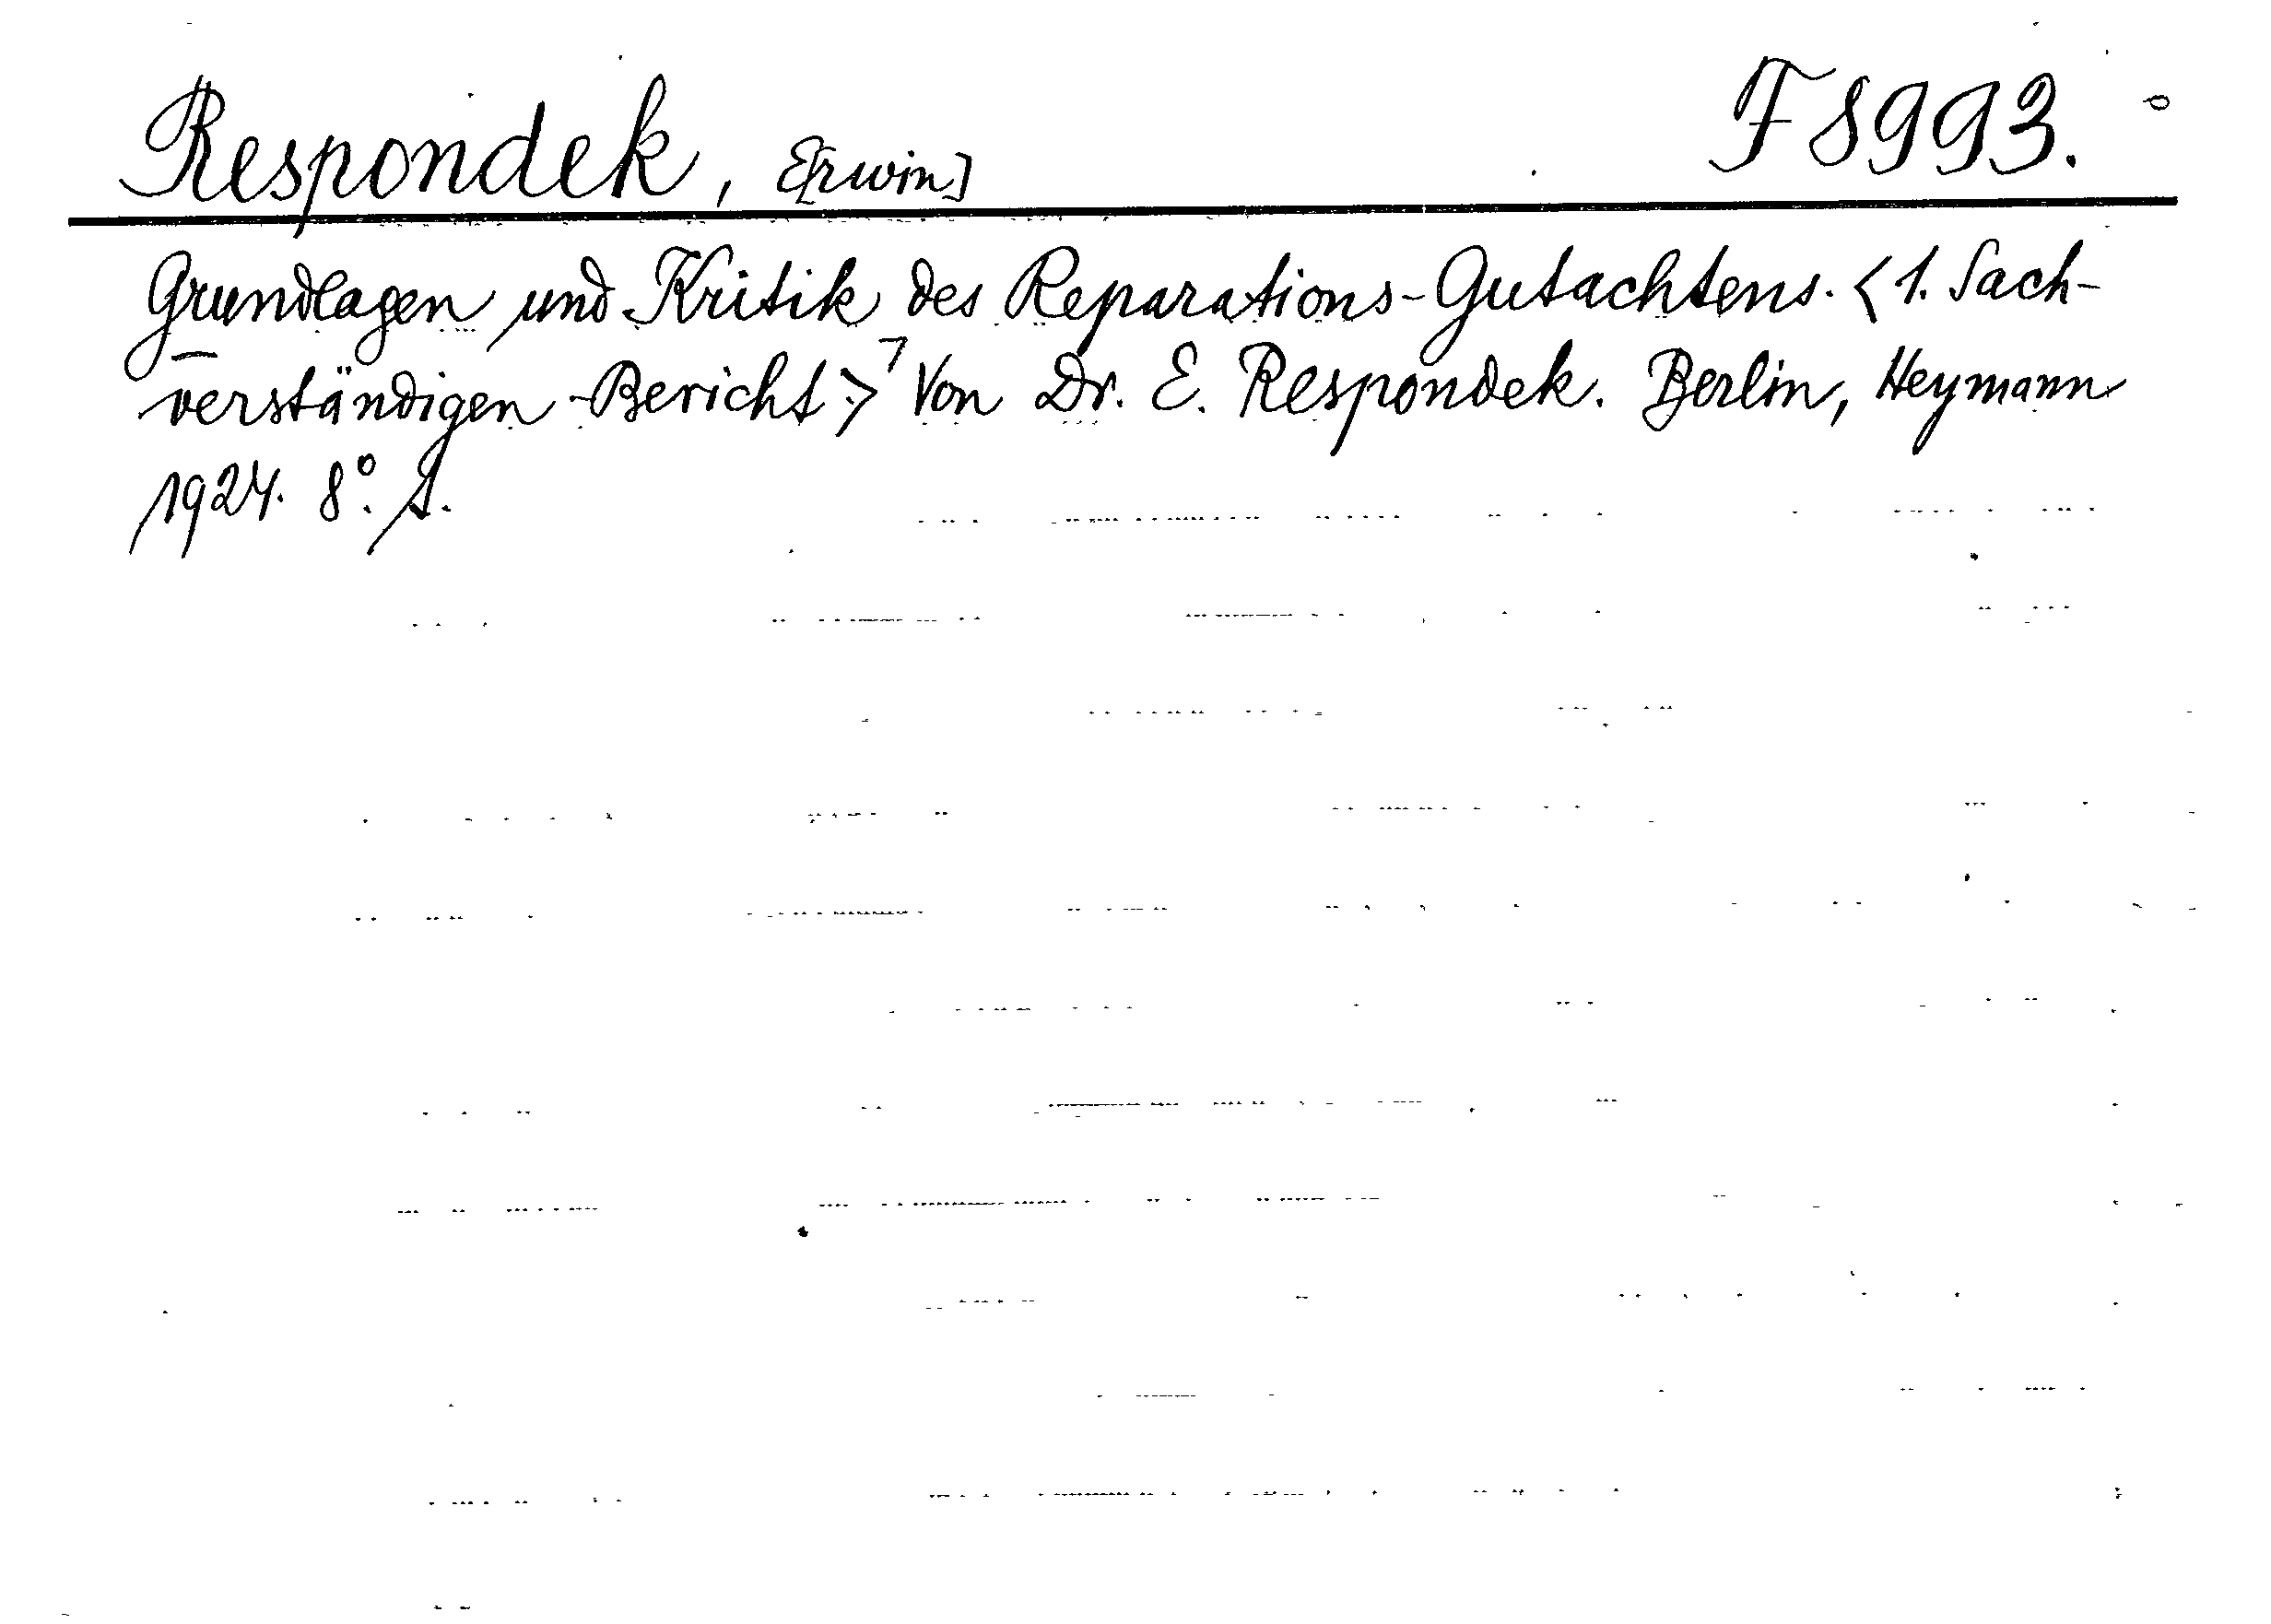 Respondek, E[rwin] F 8993.
Grundlagen und Kritik des Reparations-Gutachtens. <1. Sach-
verständigen-Bericht.> Von Dr. E. Respondek. Berlin, Heymann
1924. 8°.